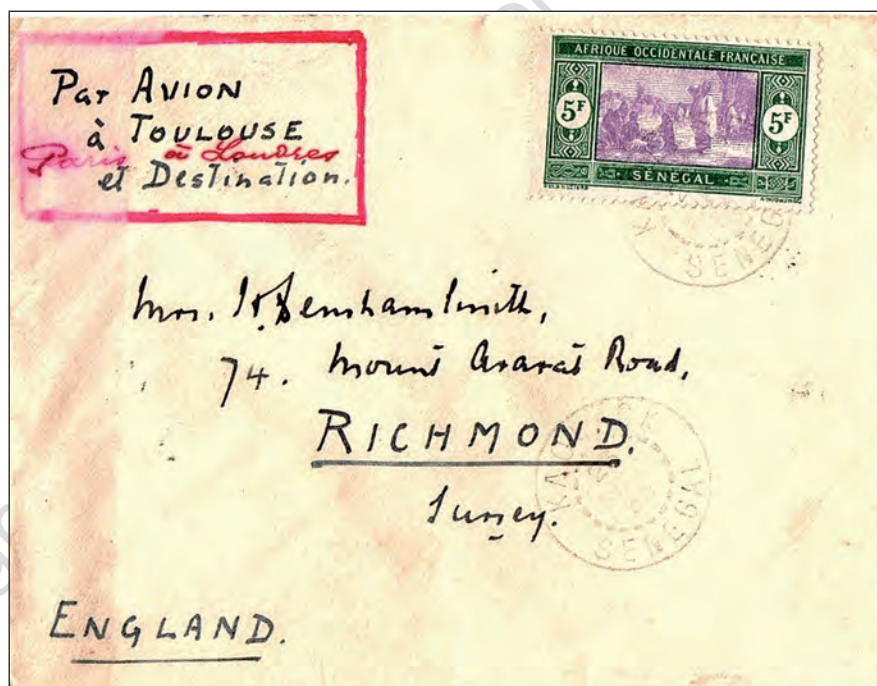 Par AVION
à TOULOUSE
Paris à Londres
et Destination.
AFRIQUE OCCIDENTALE FRANÇAISE
5F 5F
SÉNÉGAL
SENEG
Mrs.
74. Mount Ararat Road,
RICHMOND.
Surrey.
KAOLACK
SENEGAL
ENGLAND.